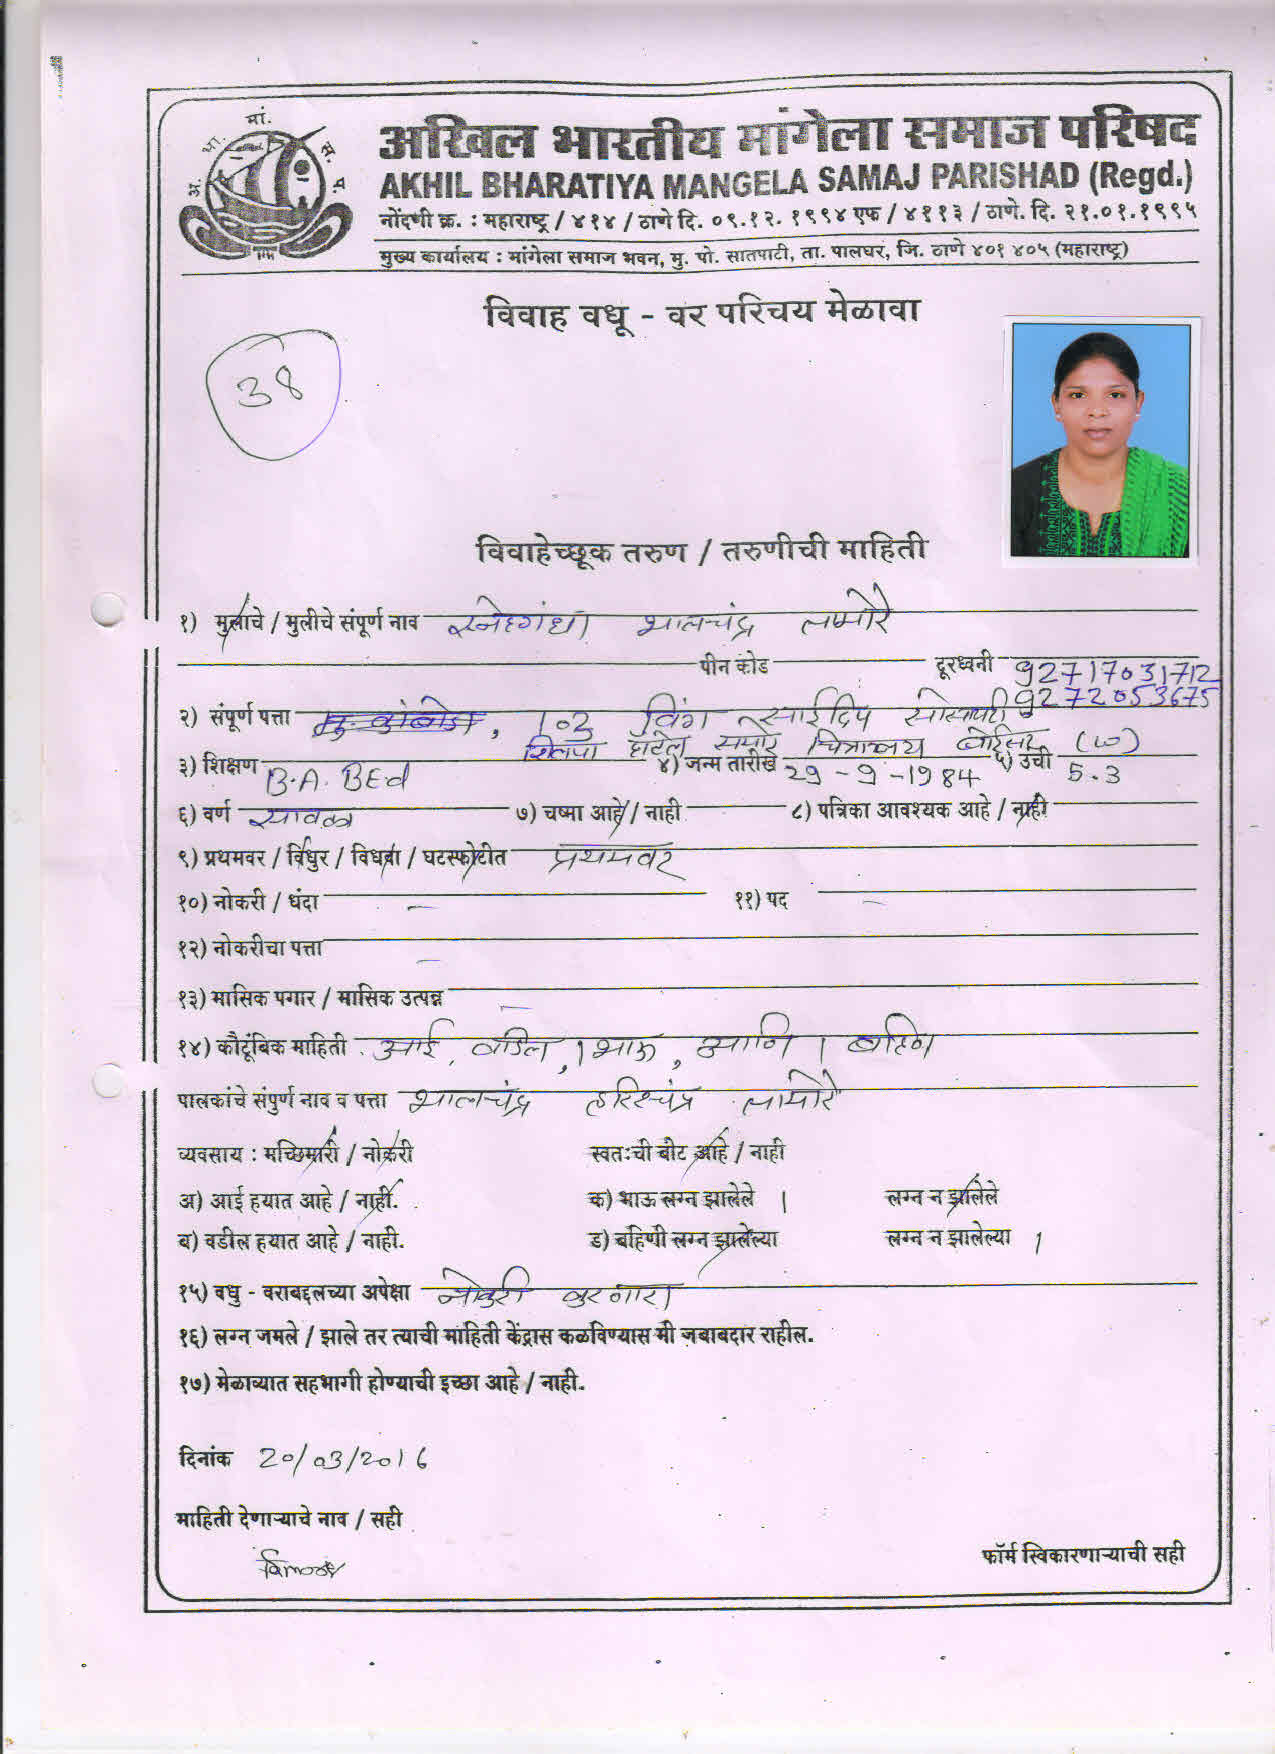 अ. भा. मां. स. प.
अखिल भारतीय मांगेला समाज परिषद
AKHIL BHARATIYA MANGELA SAMAJ PARISHAD (Regd.)
नोंदणी क्र. : महाराष्ट्र / ४१४ / ठाणे दि. ०९.१२. १९९४ एफ / ४११३ / ठाणे. दि. २१.०१.१९९५
मुख्य कार्यालय : मांगेला समाज भवन, मु. पो. सातपाटी, ता. पालघर, जि. ठाणे ४०१ ४०५ (महाराष्ट्र)
विवाह वधू - वर परिचय मेळावा
38
विवाहेच्छूक तरुण / तरुणीची माहिती
१) मुलाचे / मुलीचे संपूर्ण नाव स्नेहगंधा भालचंद्र तामोरे
पीन कोड दूरध्वनी 92717031712
9272053675
२) संपूर्ण पत्ता 102 विंग साईदिप सोसायटी
शिल्पा हॉटेल समोर चित्रालय बोईसर (w)
३) शिक्षण B.A. BEd ४) जन्म तारीख 29-9-1984 ५) उंची 5.3
६) वर्ण सावळा ७) चष्मा आहे / नाही ८) पत्रिका आवश्यक आहे / नाही
९) प्रथमवर / विधुर / विधवा / घटस्फोटीत प्रथमवर
१०) नोकरी / धंदा – ११) पद –
१२) नोकरीचा पत्ता –
१३) मासिक पगार / मासिक उत्पन्न –
१४) कौटूंबिक माहिती आई, वडिल, 1 भाऊ, आणि 1 बहिण
पालकांचे संपुर्ण नाव व पत्ता भालचंद्र हरिश्चंद्र तामोरे
व्यवसाय : मच्छिमारी / नोकरी स्वतःची बोट आहे / नाही
अ) आई हयात आहे / नाही. क) भाऊ लग्न झालेले 1 लग्न न झालेले
ब) वडील हयात आहे / नाही. ड) बहिणी लग्न झालेल्या लग्न न झालेल्या 1
१५) वधु - वराबद्दलच्या अपेक्षा नोकरी करणारा
१६) लग्न जमले / झाले तर त्याची माहिती केंद्रास कळविण्यास मी जबाबदार राहील.
१७) मेळाव्यात सहभागी होण्याची इच्छा आहे / नाही.
दिनांक 20/03/2016
माहिती देणाऱ्याचे नाव / सही
फॉर्म स्विकारणाऱ्याची सही